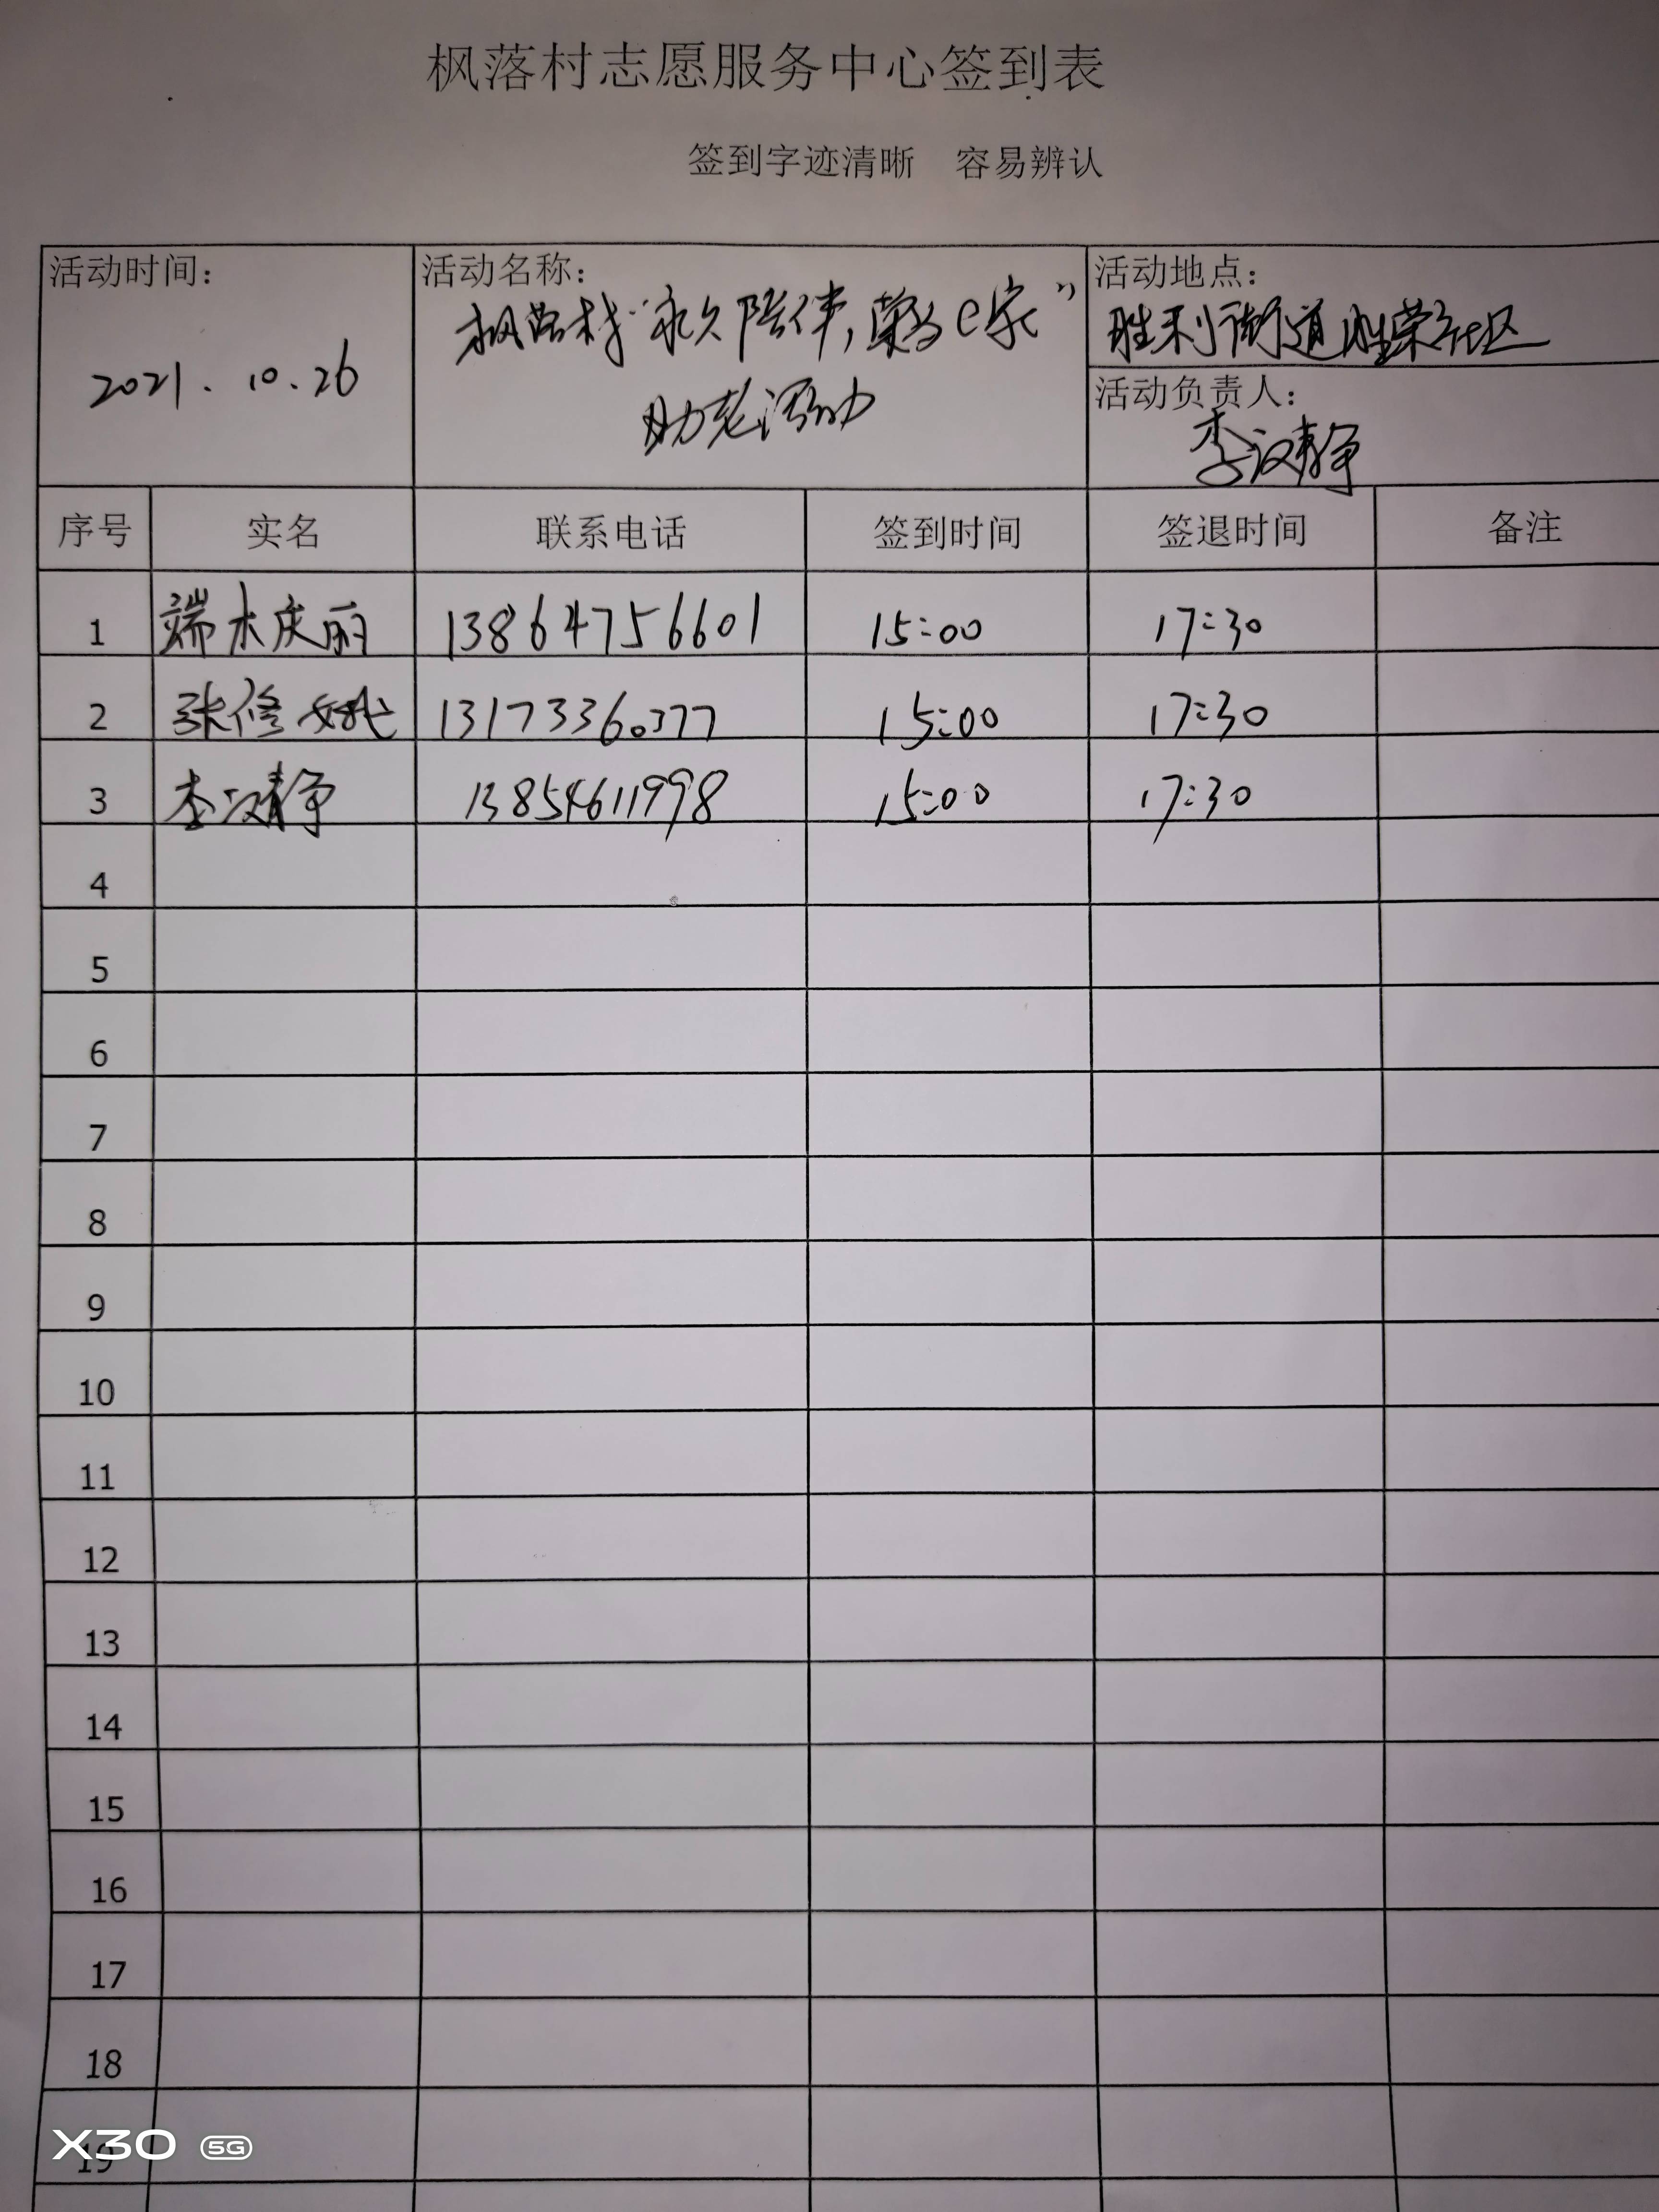 枫落村志愿服务中心签到表
签到字迹清晰 容易辨认
活动时间: 活动名称: 活动地点:
枫落村“永久陪伴,荣为e家”
胜利街道胜荣社区
2021.10.26
助老活动
活动负责人:
李汶静
序号 实名 联系电话 签到时间 签退时间 备注
1 端木庆丽 13864756601 15:00 17:30
2 张修姚 13173360377 15:00 17:30
3 李汶静 13854611998 15:00 17:30
4
5
6
7
8
9
10
11
12
13
14
15
16
17
18
19
X30 5G